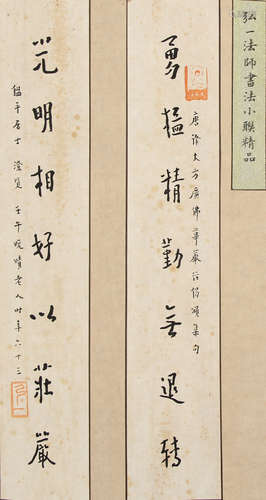 弘一法師書法小聯精品
勇猛精勤無退轉
唐譯大方廣佛華嚴經偈頌集句
光明相好以莊嚴
居士 澄覽 壬午晚晴老人時年六十三